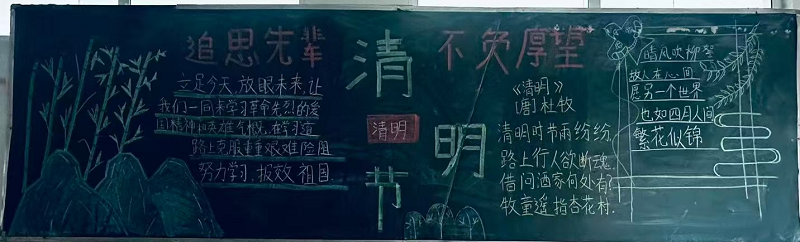 追思先辈
立足今天,放眼未来,让
我们一同来学习革命先烈的爱
国精神和英雄气概,在学习道
路上克服重重艰难险阻
努力学习,报效祖国
清明节
清明
不负厚望
《清明》
[唐]杜牧
清明时节雨纷纷,
路上行人欲断魂.
借问酒家何处有?
牧童遥指杏花村.
清风吹柳絮
故人在心间
愿另一个世界
也如四月人间
繁花似锦